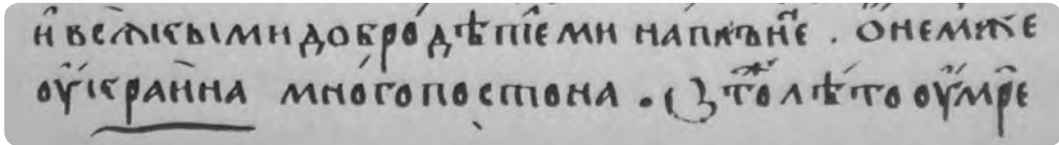 и҆ всѧкыми добродѣтїеми наплъне . ѻ҆ немже
оу҆краина многопостона . В то лѣто оу҆мре